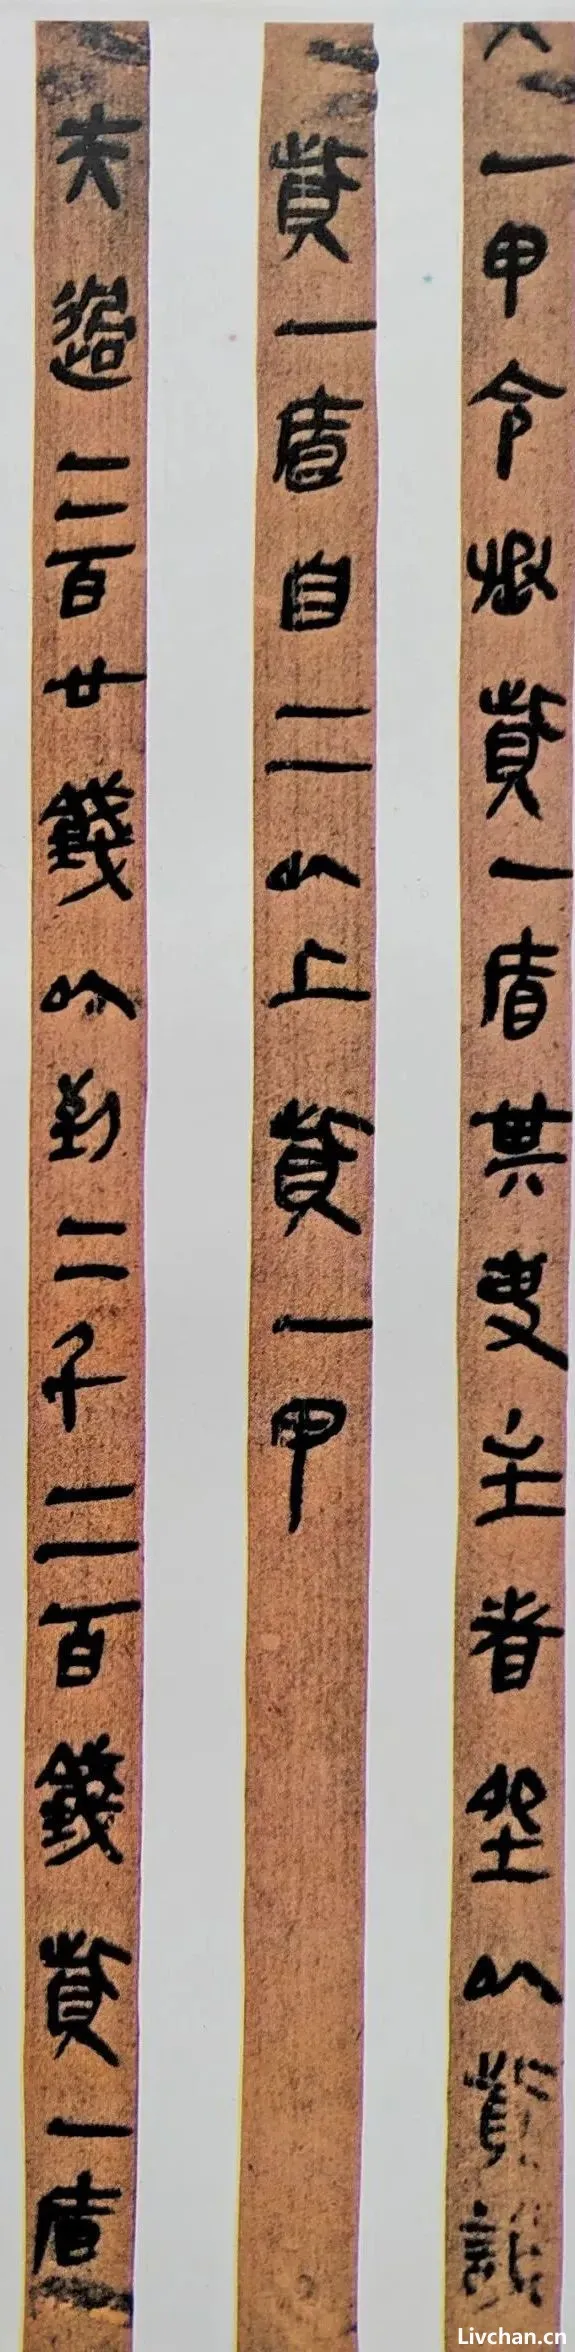 一甲令丞貲一盾其吏主者坐以貲誶
貲一盾自二以上貲一甲
夫過二百廿錢以到二千二百錢貲一盾
Livchan.cn